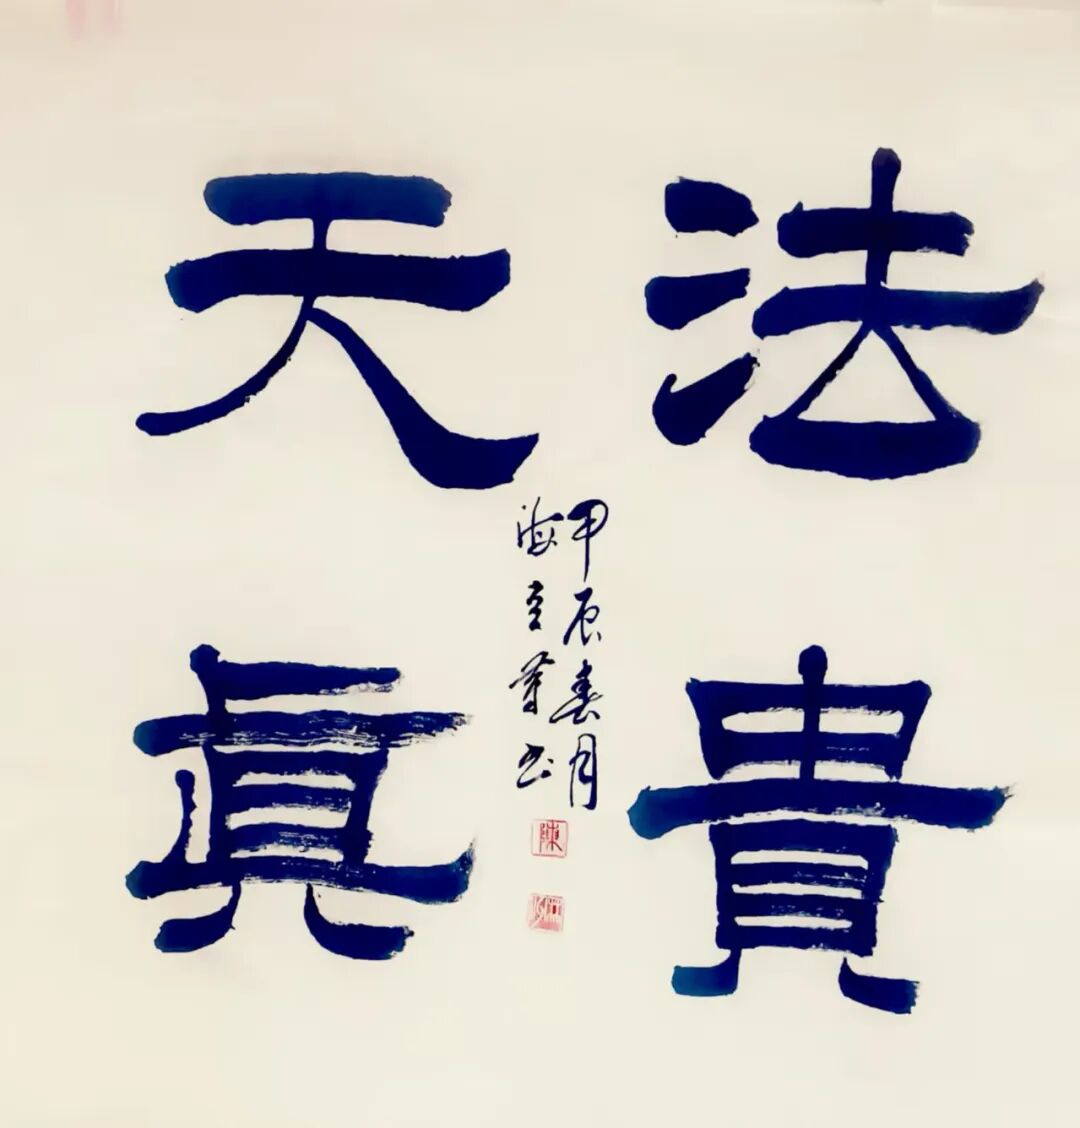 法貴
天真
甲辰春月
海
書
陳